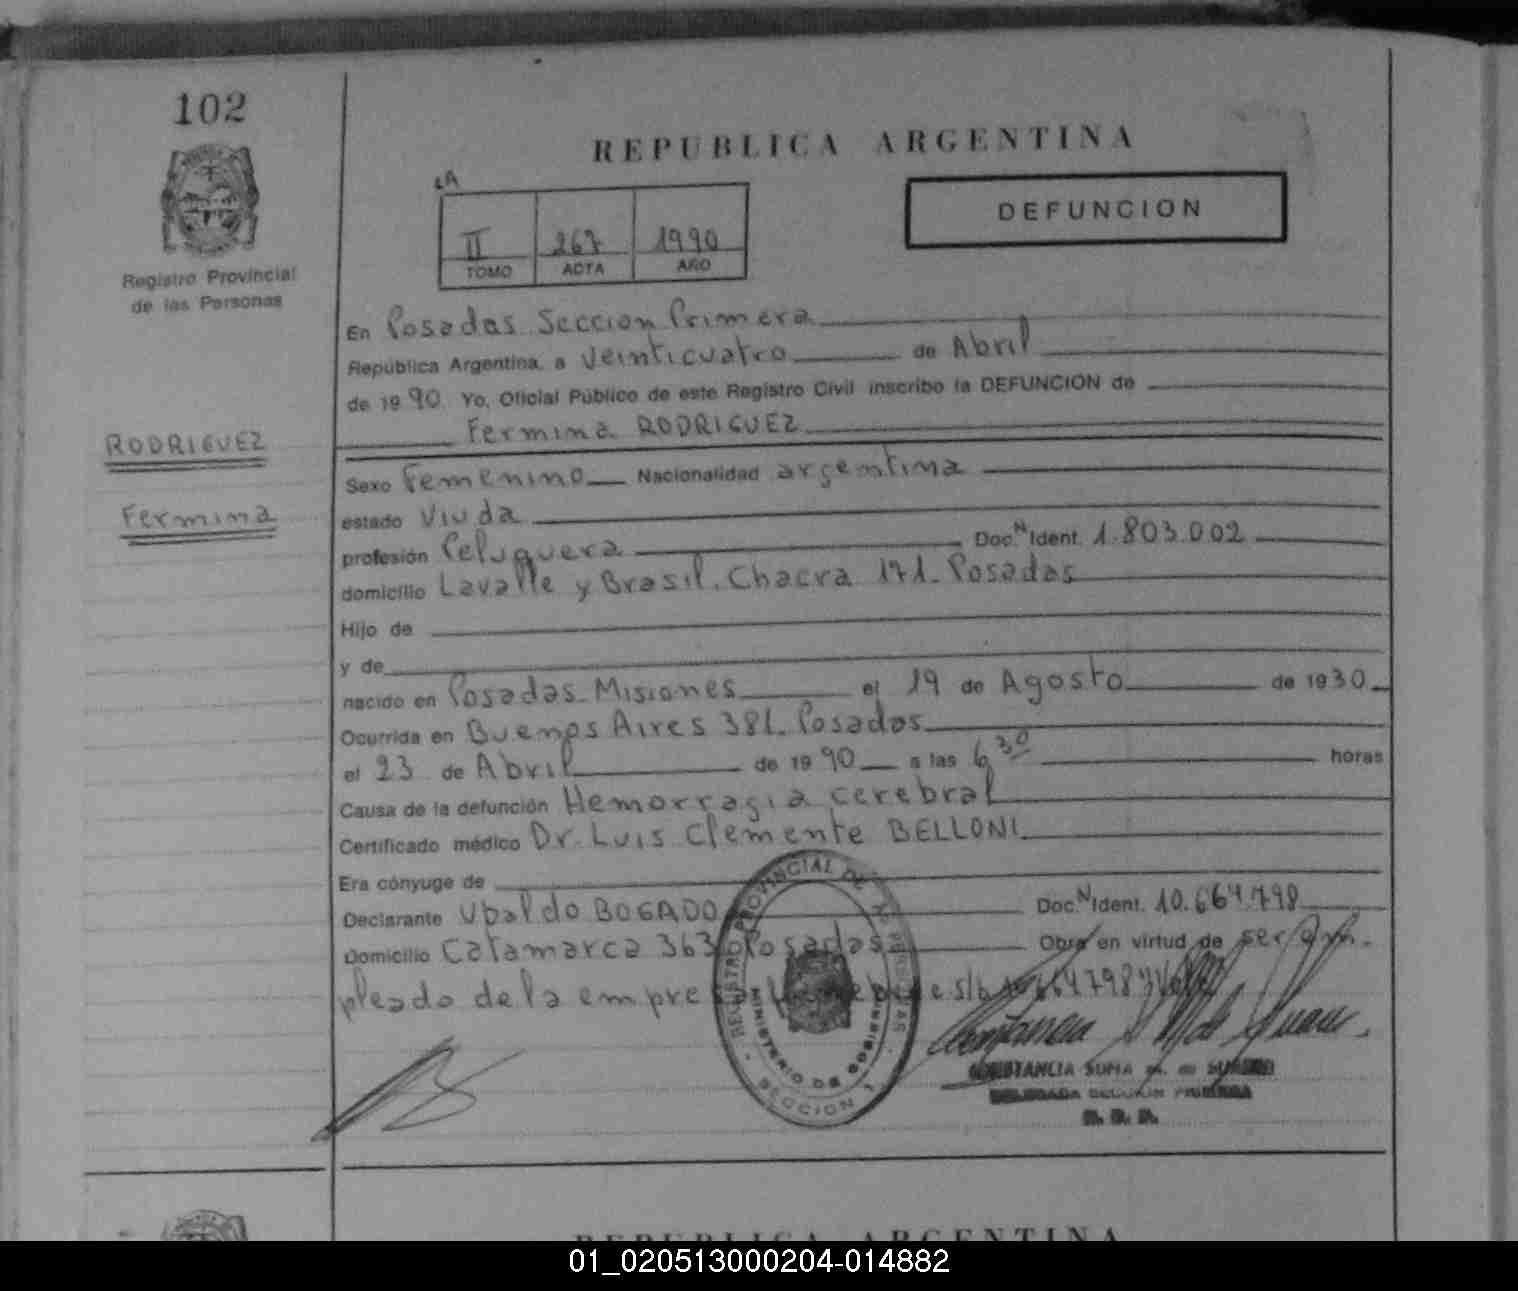 102
REPUBLICA ARGENTINA
Registro Provincial
de las Personas
II 267 1990
TOMO ACTA AÑO
DEFUNCION
En Posadas Seccion Primera
República Argentina, a Veinticuatro de Abril
de 1990. Yo, Oficial Público de este Registro Civil inscribo la DEFUNCION de
Fermina RODRIGUEZ
RODRIGUEZ
Fermina
Sexo Femenino Nacionalidad argentina
estado Viuda
profesión Peluquera Doc. N Ident. 1.803.002
domicilio Lavalle y Brasil. Chacra 171. Posadas
Hijo de
y de
nacido en Posadas Misiones el 19 de Agosto de 1930
Ocurrida en Buenos Aires 381. Posadas
el 23 de Abril de 1990 a las 6,30 horas
Causa de la defunción Hemorragia cerebral
Certificado médico Dr. Luis Clemente BELLONI
Era cónyuge de
Declarante Ubaldo BOGADO Doc. N Ident. 10.664.798
Domicilio Catamarca 363 Posadas Obra en virtud de ser em-
pleado de la empresa
REGISTRO PROVINCIAL DE LAS PERSONAS
MINISTERIO DE GOBIERNO
SECCION 1
DELEGADA SECCION PRIMERA
REPUBLICA ARGENTINA
01_020513000204-014882